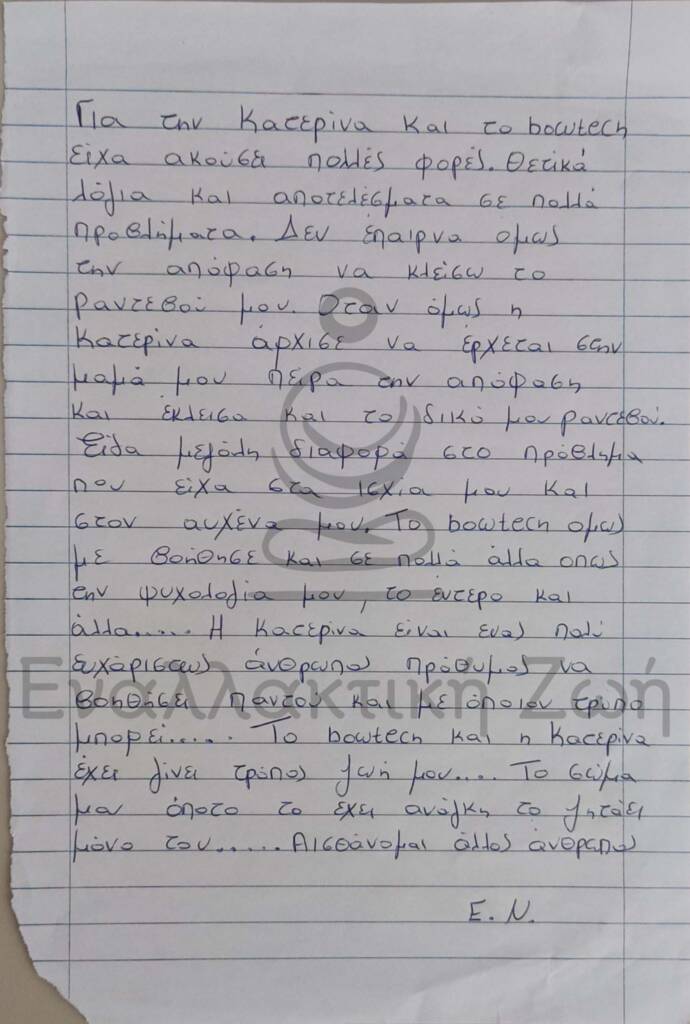 Για την Κατερίνα και το bowtech
είχα ακούσει πολλές φορές. Θετικά
λόγια και αποτελέσματα σε πολλά
προβλήματα. Δεν έπαιρνα ομως
την απόφαση να κλείσω το
ραντεβού μου. Όταν όμως η
Κατερίνα άρχισε να έρχεται στην
μαμά μου πείρα την απόφαση
και έκλεισα και το δικό μου ραντεβού.
Είδα μεγάλη διαφορά στο πρόβλημα
που είχα στα ισχία μου και
στον αυχένα μου. Το bowtech ομως
με βοήθησε και σε πολλά άλλα οπως
την ψυχολογία μου, το έντερο και
άλλα..... Η Κατερίνα είναι ενας πολύ
ευχάριστως άνθρωπος πρόθυμος να
Εναλλακτική Ζωή
βοηθήσει παντού και με όποιον τρόπο
μπορεί..... Το bowtech και η Κατερίνα
έχει γίνει τρόπος ζωή μου.... Το σώμα
μου όποτο το έχει ανάγκη το ζητάει
μόνο του..... Αισθάνομαι άλλος άνθρωπος
Ε. Ν.